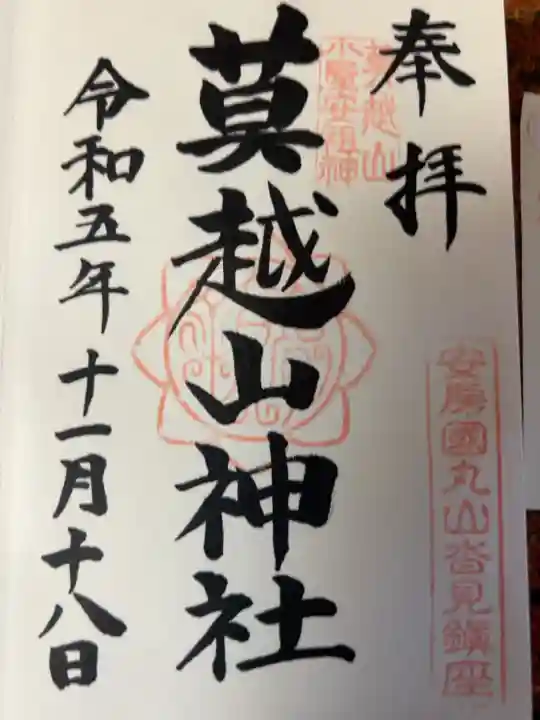 奉拝
莫越山
小屋安祖神
莫越山神社
令和五年十一月十八日
安房國丸山沓見鎮座